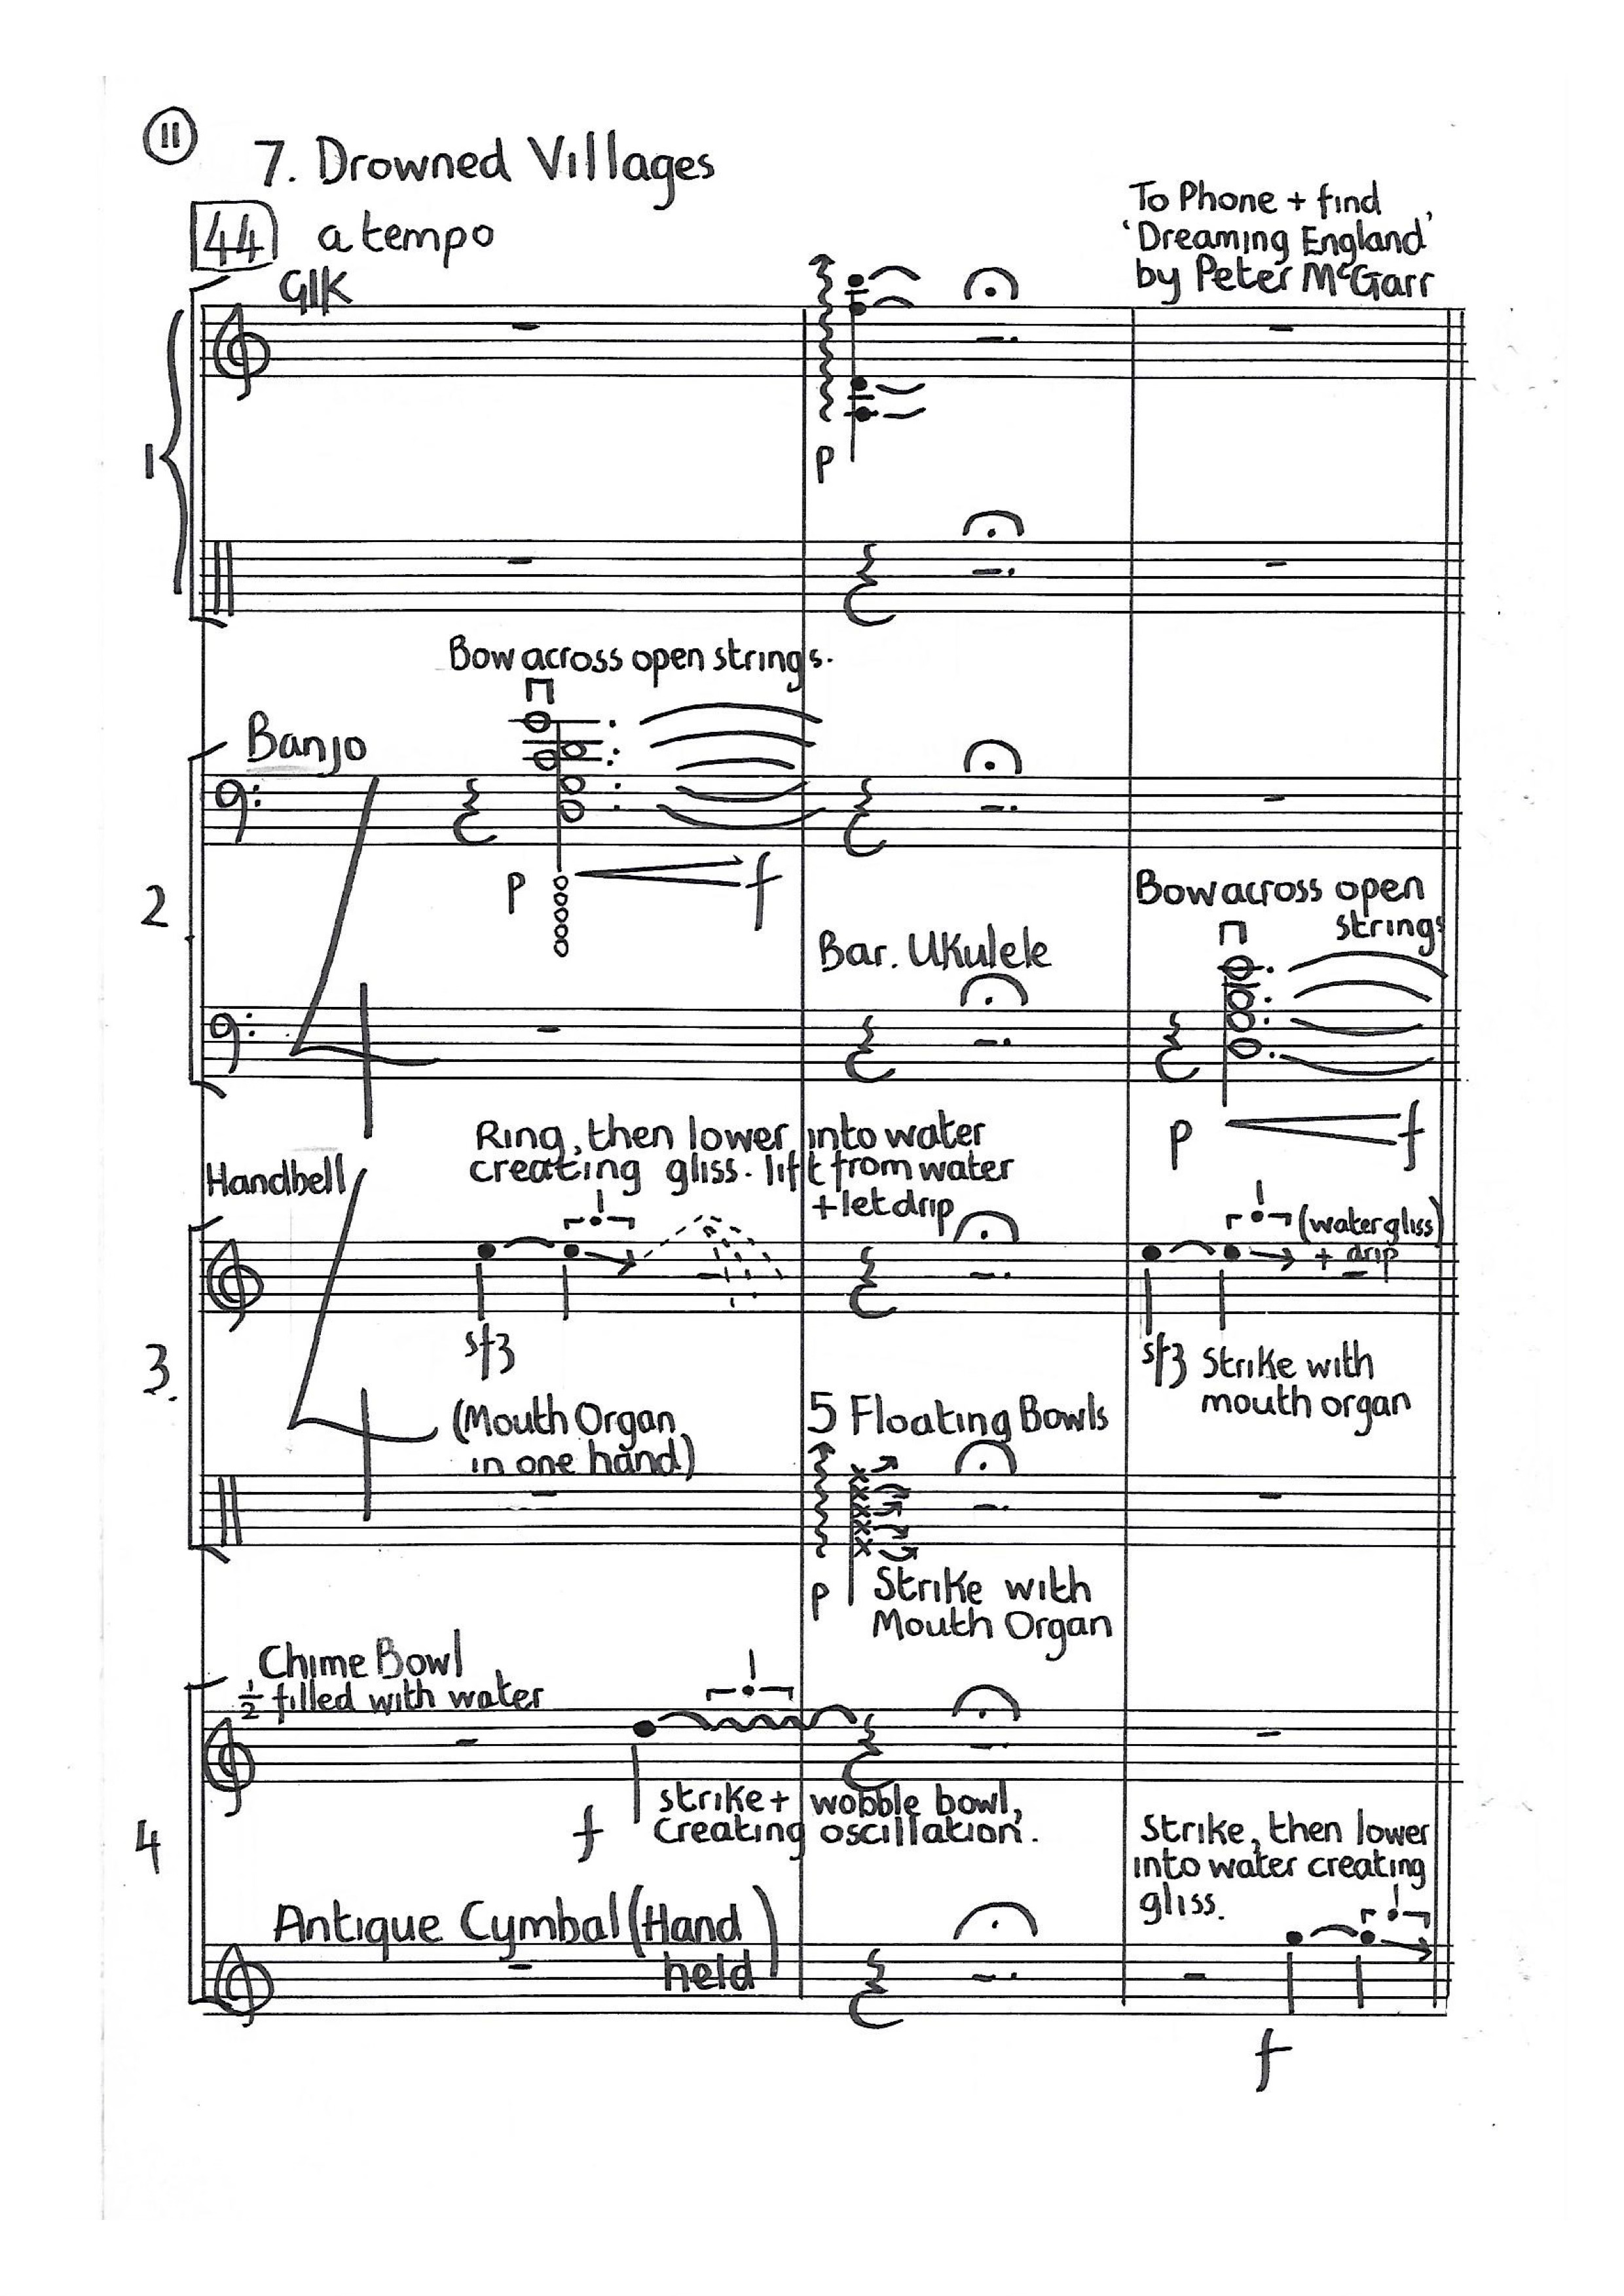 11
7. Drowned Villages
44 a tempo
To Phone + find
'Dreaming England'
by Peter McGarr
Glk
1
p
Bow across open strings.
Banjo
2
p
f
Bow across open
strings
Bar. Ukulele
4
p
f
Ring, then lower into water
creating gliss. lift from water
+ let drip
Handbell
(water gliss)
+ drip
3.
sfz
sfz Strike with
mouth organ
4
(Mouth Organ
in one hand)
5 Floating Bowls
p
Strike with
Mouth Organ
Chime Bowl
½ filled with water
4
f
strike + wobble bowl,
creating oscillation.
Strike, then lower
into water creating
gliss.
Antique Cymbal (Hand
held)
f